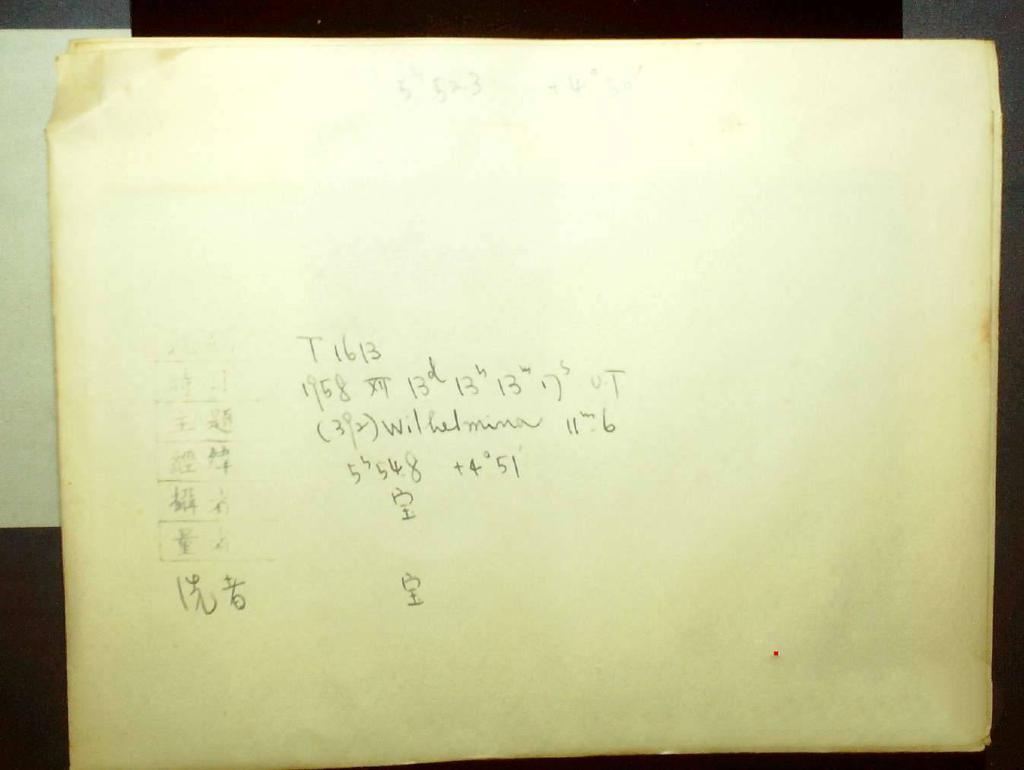 5ʰ 52.3 +4°50'
T 1613
1958 XII 13ᵈ 13ʰ 13ᵐ 17ˢ U.T
主題 (392) Wilhelmina 11ᵐ.6
經緯 5ʰ54.8 +4°51'
攝者 宝
量者
洗者 宝